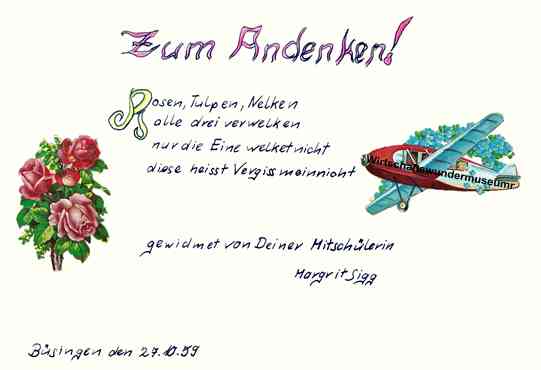 Zum Andenken!
Rosen, Tulpen, Nelken
alle drei verwelken
nur die Eine welket nicht
diese heisst Vergissmeinnicht
Wirtschaftswundermuseumr.
gewidmet von Deiner Mitschülerin
Margrit Sigg
Büsingen den 27.10.59